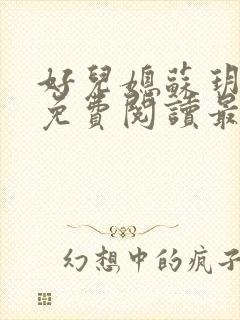 好兒媳蘇玥
免費閱讀最
幻想中的疯子